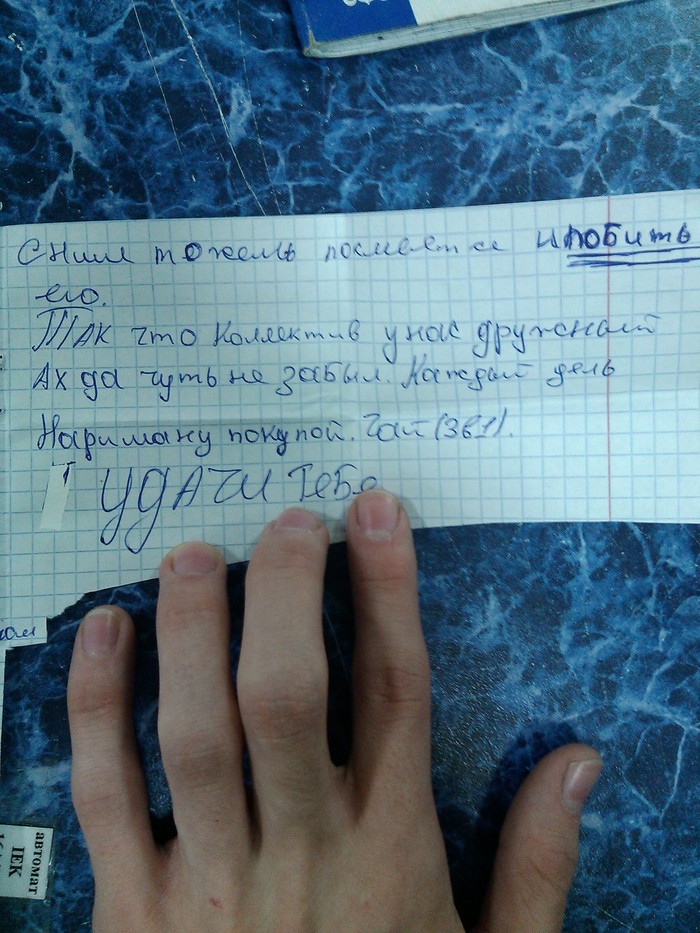 с ним тожеть посмеятся и побить
его.
Так что коллектив у нас дружный
Ах да чуть не забыл. Каждый день
Нариману покупой. Чай (3в1).
удачи тебе
автомат
IEK